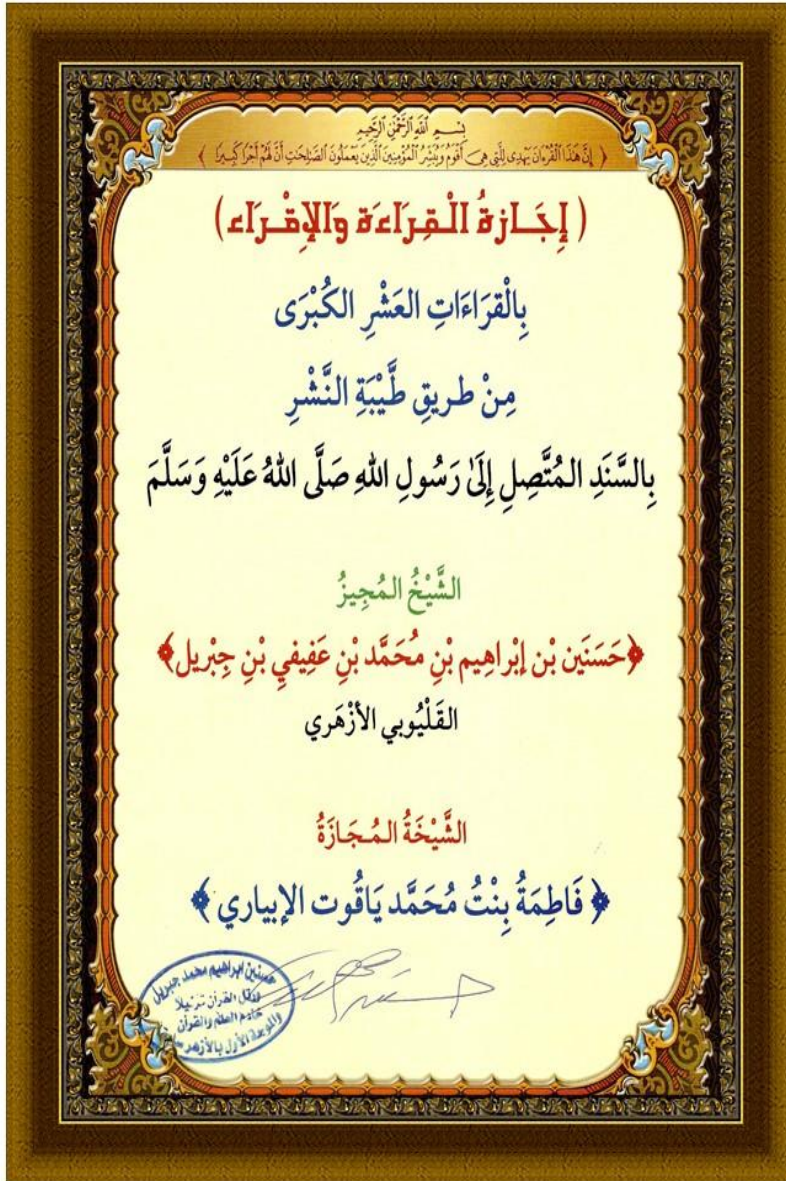 بِسْمِ اللَّهِ الرَّحْمَٰنِ الرَّحِيمِ
﴿ إِنَّ هَٰذَا الْقُرْءَانَ يَهْدِى لِلَّتِى هِىَ أَقْوَمُ وَيُبَشِّرُ الْمُؤْمِنِينَ الَّذِينَ يَعْمَلُونَ الصَّٰلِحَٰتِ أَنَّ لَهُمْ أَجْرًا كَبِيرًا ﴾
( إِجَازَةُ الْقِرَاءَة وَالإِقْرَاء )
بِالْقرَاءَاتِ العَشْرِ الكُبْرَى
مِنْ طريقِ طَّيْبَةِ النَّشْرِ
بِالسَّنَدِ المُتَّصِلِ إِلَىٰ رَسُولِ اللهِ صَلَّى اللهُ عَلَيْهِ وَسَلَّمَ
الشَّيْخُ المُجِيزُ
﴿حَسَنَين بْن إبْراهِيم بْنِ مُحَمَّد بْنِ عَفِيفي بْنِ جِبْريل﴾
القَلْيُوبي الأزْهَري
الشَّيْخَةُ المُجَازَةُ
﴿ فَاطِمَةُ بِنْتُ مُحَمَّد يَاقُوت الإبياري ﴾
حسنين ابراهيم محمد جبريل
ورتل القرآن ترتيلا
خادم العلم والقرآن
والموجه الأول بالأزهر